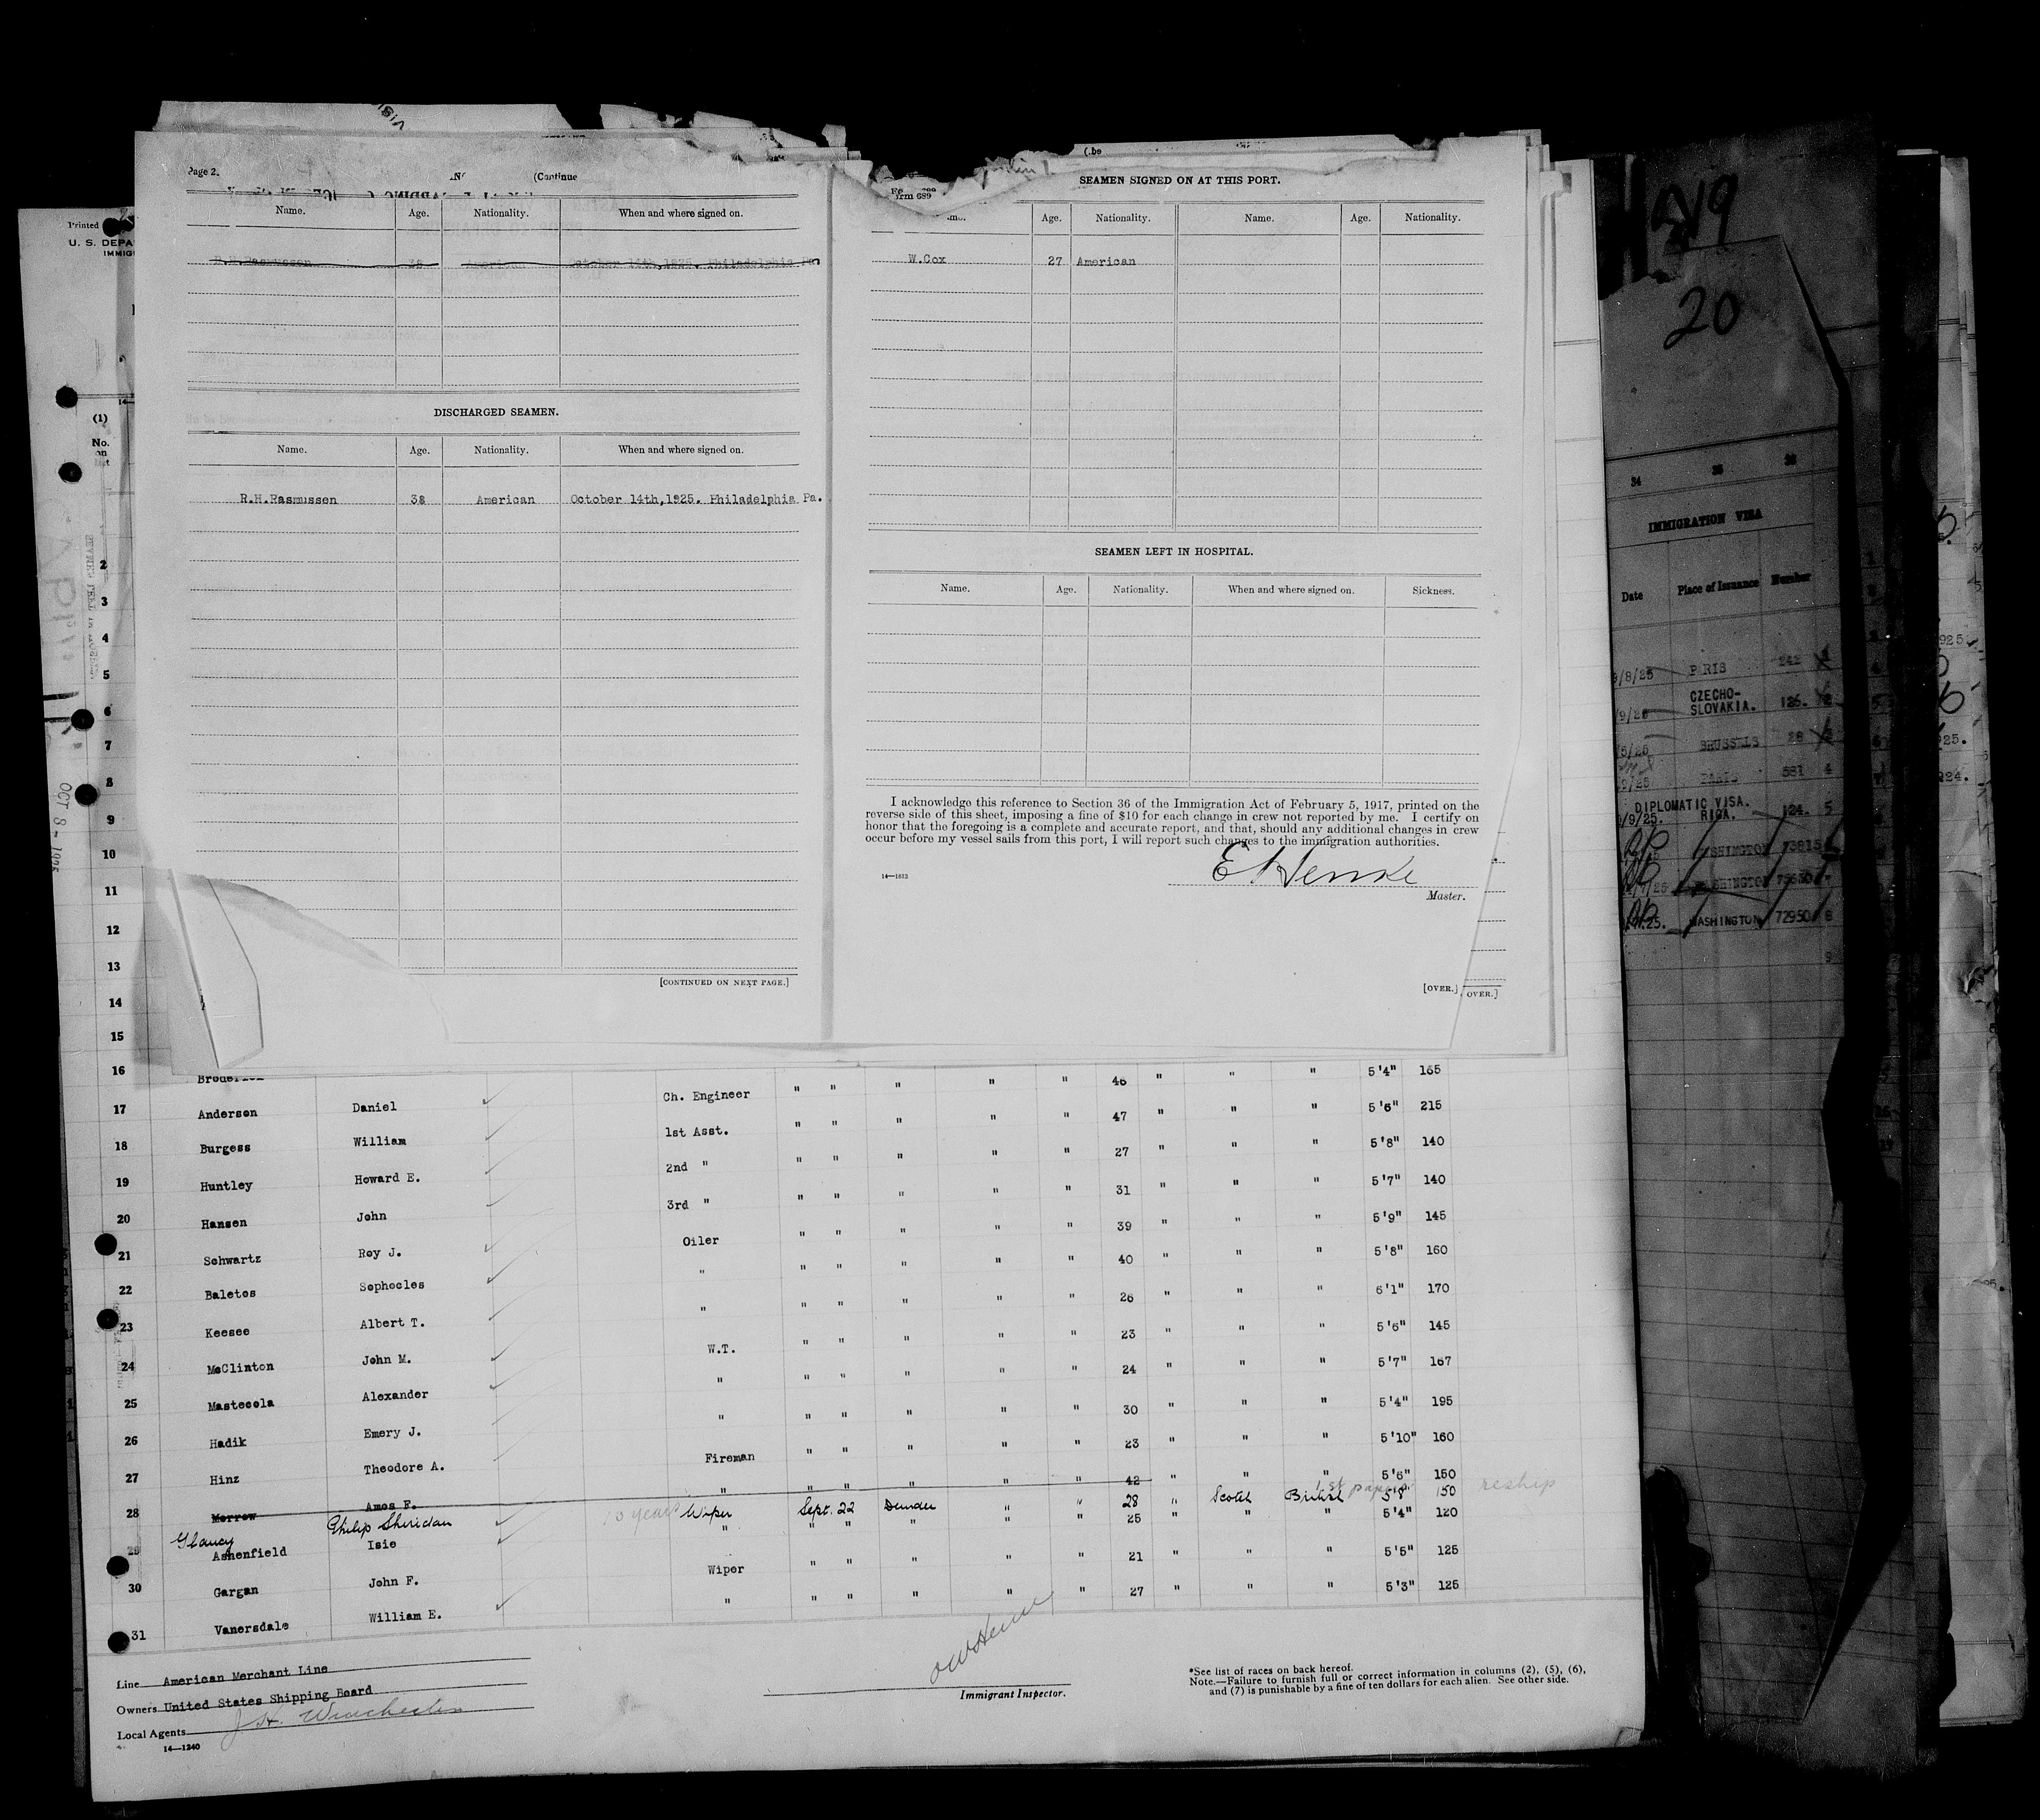 Page 2.
(Continue
Name. Age. Nationality. When and where signed on.
R.H.Rasmussen 38 American October 14th,1925. Philadelphia Pa
DISCHARGED SEAMEN.
Name. Age. Nationality. When and where signed on.
R.H.Rasmussen 38 American October 14th,1925. Philadelphia Pa.
[CONTINUED ON NEXT PAGE.]
SEAMEN SIGNED ON AT THIS PORT.
rm 689
Age. Nationality. Name. Age. Nationality.
W.Cox 27 American
SEAMEN LEFT IN HOSPITAL.
Name. Age. Nationality. When and where signed on. Sickness.
I acknowledge this reference to Section 36 of the Immigration Act of February 5, 1917, printed on the
reverse side of this sheet, imposing a fine of $10 for each change in crew not reported by me. I certify on
honor that the foregoing is a complete and accurate report, and that, should any additional changes in crew
occur before my vessel sails from this port, I will report such changes to the immigration authorities.
14—1613
E Henke
Master.
[OVER.]
OVER.]
Printed
U. S. DEPA
IMMIG
(1)
No.
on
list
2
3
4
5
6
7
8
9
10
11
12
13
14
15
OCT 8 - 1925
16 Broderick 46 " " " 5'4" 165
17 Anderson Daniel Ch. Engineer " " " " " 47 " " " 5'6" 215
18 Burgess William 1st Asst. " " " " " 27 " " " 5'8" 140
19 Huntley Howard E. 2nd " " " " " " 31 " " " 5'7" 140
20 Hansen John 3rd " " " " " " 39 " " " 5'9" 145
21 Schwartz Roy J. Oiler " " " " " 40 " " " 5'8" 160
22 Baletos Sophocles " " " " " " 26 " " " 6'1" 170
23 Keesee Albert T. " " " " " " 23 " " " 5'6" 145
24 McClinton John M. W.T. " " " " " 24 " " " 5'7" 167
25 Mastecola Alexander " " " " " " 30 " " " 5'4" 195
26 Hadik Emery J. " " " " " " 23 " " " 5'10" 160
27 Hinz Theodore A. Fireman " " " " " 42 " " " 5'6" 150
28 Morrow Amos F. " " " " " "
Glancy Philip Sheridan 10 years Wiper Sept. 22 Dundee " " 28 " Scotch British 5'8" 150 1st papers reship
29 Ashenfield Isie " " " " " " 25 " " " 5'4" 120
30 Gargan John F. Wiper " " " " " 21 " " " 5'5" 125
31 Vanersdale William E. " " " " " " 27 " " " 5'3" 125
Line American Merchant Line
Owners United States Shipping Board
Local Agents J.H. Winchester
14—1240
Immigrant Inspector.
*See list of races on back hereof.
Note.—Failure to furnish full or correct information in columns (2), (5), (6),
and (7) is punishable by a fine of ten dollars for each alien. See other side.
319
20
34 35 36
IMMIGRATION VISA
Date Place of Issuance Number
/8/25 PARIS 242 1
/9/25 CZECHO-
SLOVAKIA. 126. 2
/5/25 BRUSSELS 28 3
/25 PARIS 581 4
DIPLOMATIC VISA.
/9/25. RIGA. 124. 5
WASHINGTON 73815
WASHINGTON
25. WASHINGTON 72950 8
9
925
25.
924.